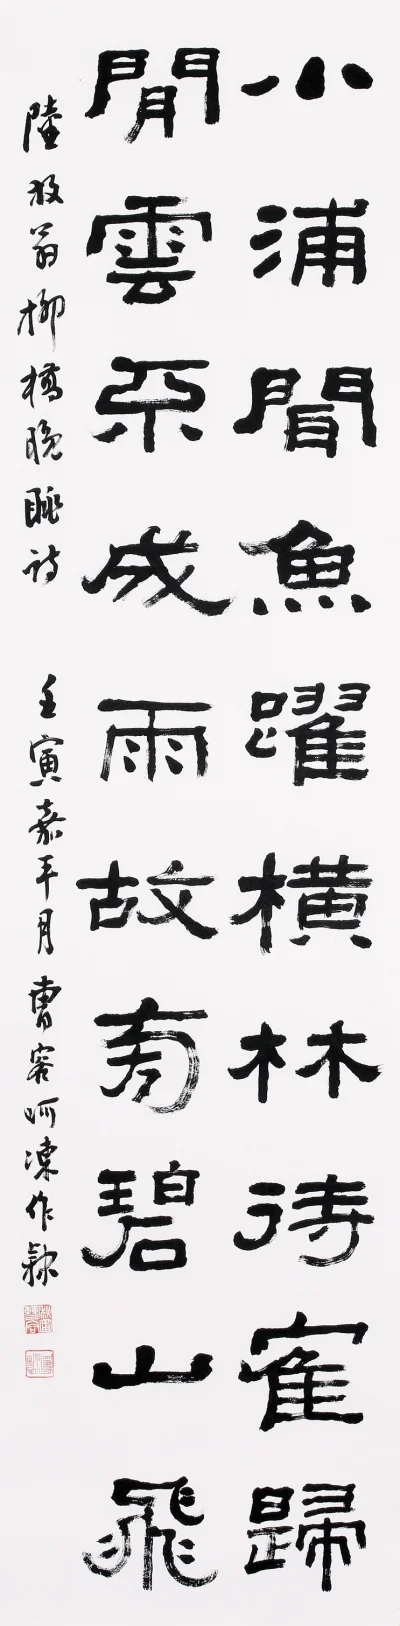 小浦聞魚躍橫林待寉歸
閒雲不成雨故旁碧山飛
陸放翁柳橋晚眺詩 壬寅嘉平月曹容呵凍作隸